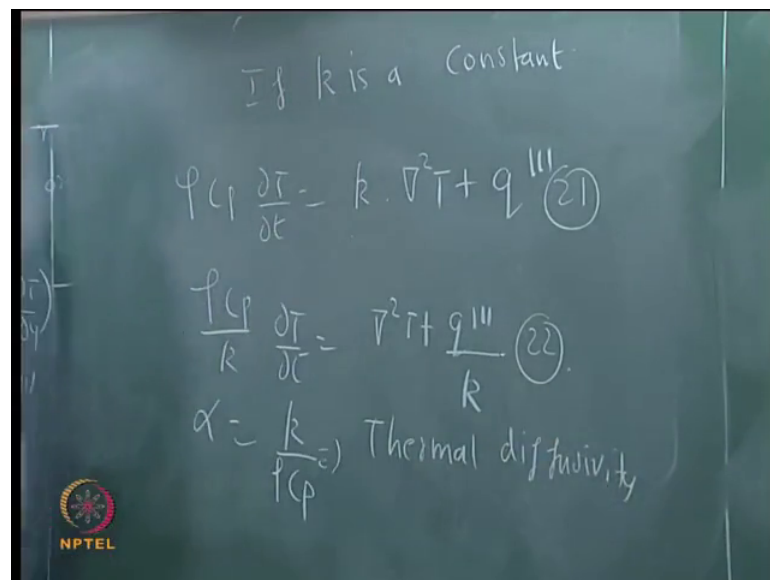 If k is a constant.
ρCp ∂T/∂t = k . ∇²T + q''' (21)
ρCp/k ∂T/∂t = ∇²T + q'''/k (22).
α = k/ρCp => Thermal diffusivity
NPTEL